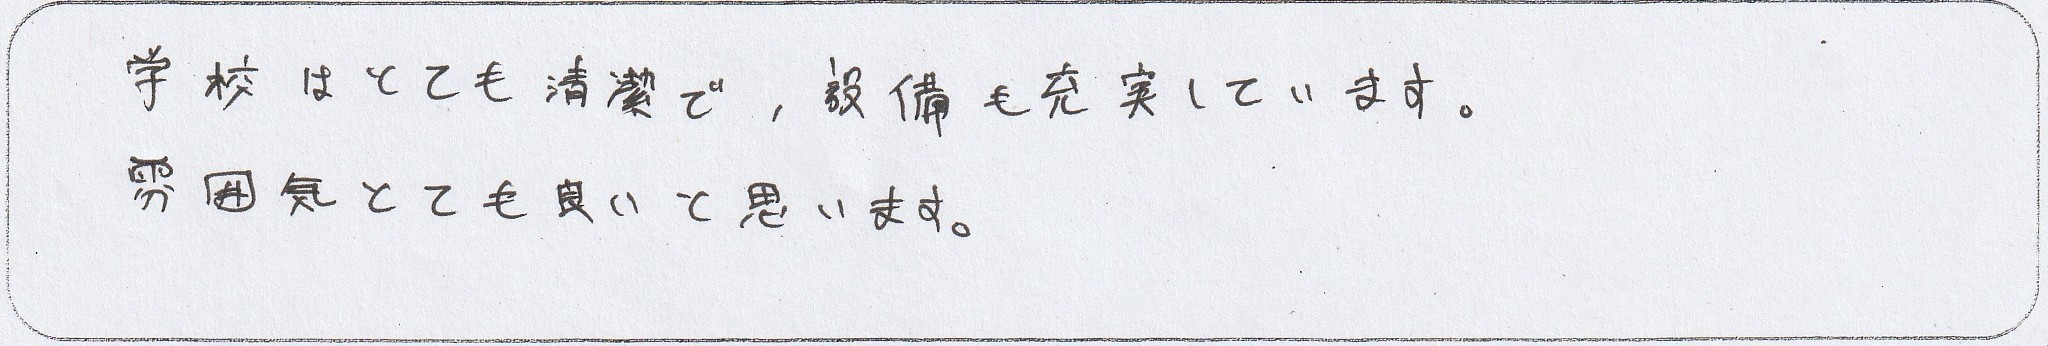 学校はとても清潔で,設備も充実しています。
雰囲気とても良いと思います。